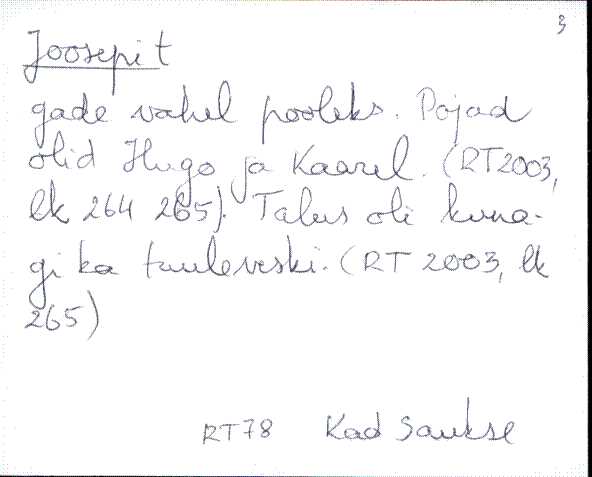 3
Joosepit
gade vahel pooleks. Pojad
olid Hugo ja Kaarel. (RT2003,
lk 264 265). Talus oli kuna-
gi ka tuuleveski. (RT 2003, lk
265)
RT78 Kad Saukse